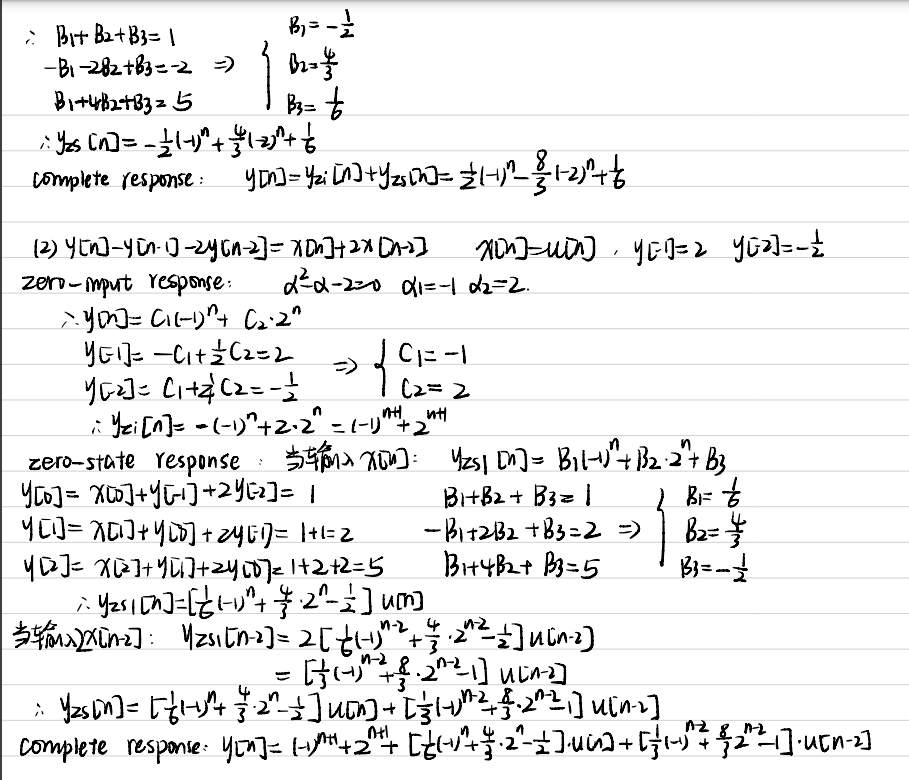 ∴ B₁+B₂+B₃=1 B₁=-1/2
-B₁-2B₂+B₃=-2 ⇒ { B₂=4/3
B₁+4B₂+B₃=5 B₃=1/6
∴ yzs[n]=-1/2(-1)ⁿ+4/3(-2)ⁿ+1/6
complete response: y[n]=yzi[n]+yzs[n]=1/2(-1)ⁿ-8/3(-2)ⁿ+1/6
(2) y[n]-y[n-1]-2y[n-2]=x[n]+2x[n-2] x[n]=u[n], y[-1]=2 y[-2]=-1/2
zero-input response: α²-α-2=0 α₁=-1 α₂=2.
∴ y[n]=C₁(-1)ⁿ+C₂·2ⁿ
y[-1]=-C₁+1/2C₂=2 ⇒ { C₁=-1
y[-2]=C₁+1/4C₂=-1/2 C₂=2
∴ yzi[n]=-(-1)ⁿ+2·2ⁿ=(-1)ⁿ⁺¹+2ⁿ⁺¹
zero-state response: 当输入x[n]: yzs1[n]=B₁(-1)ⁿ+B₂·2ⁿ+B₃
y[0]=x[0]+y[-1]+2y[-2]=1 B₁+B₂+B₃=1 B₁=1/6
y[1]=x[1]+y[0]+2y[-1]=1+1=2 -B₁+2B₂+B₃=2 ⇒ { B₂=4/3
y[2]=x[2]+y[1]+2y[0]=1+2+2=5 B₁+4B₂+B₃=5 B₃=-1/2
∴ yzs1[n]=[1/6(-1)ⁿ+4/3·2ⁿ-1/2]u[n]
当输入2x[n-2]: yzs1[n-2]=2[1/6(-1)ⁿ⁻²+4/3·2ⁿ⁻²-1/2]u[n-2]
=[1/3(-1)ⁿ⁻²+8/3·2ⁿ⁻²-1]u[n-2]
∴ yzs[n]=[1/6(-1)ⁿ+4/3·2ⁿ-1/2]u[n]+[1/3(-1)ⁿ⁻²+8/3·2ⁿ⁻²-1]u[n-2]
complete response: y[n]=(-1)ⁿ⁺¹+2ⁿ⁺¹+[1/6(-1)ⁿ+4/3·2ⁿ-1/2]·u[n]+[1/3(-1)ⁿ⁻²+8/3 2ⁿ⁻²-1]·u[n-2]